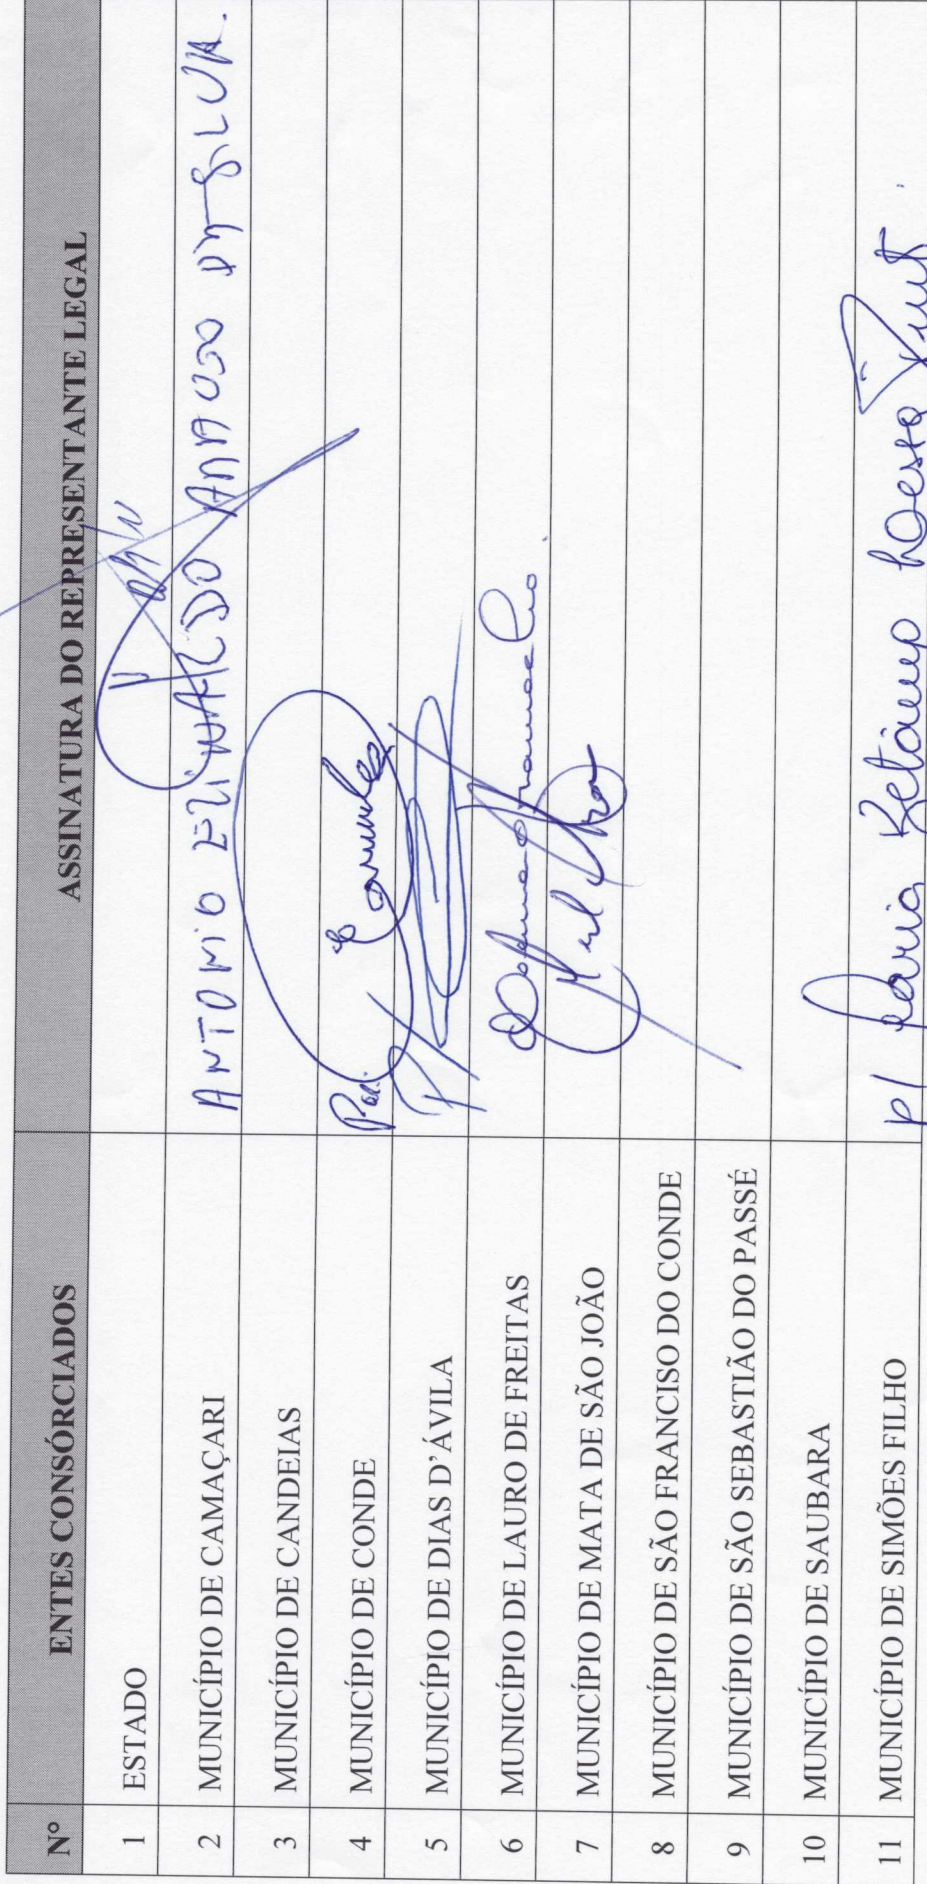 Nº ENTES CONSÓRCIADOS ASSINATURA DO REPRESENTANTE LEGAL
1 ESTADO
2 MUNICÍPIO DE CAMAÇARI ANTONIO ELINALDO ARAUJO DA SILVA.
3 MUNICÍPIO DE CANDEIAS
4 MUNICÍPIO DE CONDE
5 MUNICÍPIO DE DIAS D'ÁVILA
6 MUNICÍPIO DE LAURO DE FREITAS
7 MUNICÍPIO DE MATA DE SÃO JOÃO
8 MUNICÍPIO DE SÃO FRANCISO DO CONDE
9 MUNICÍPIO DE SÃO SEBASTIÃO DO PASSÉ
10 MUNICÍPIO DE SAUBARA
11 MUNICÍPIO DE SIMÕES FILHO p/ Maria